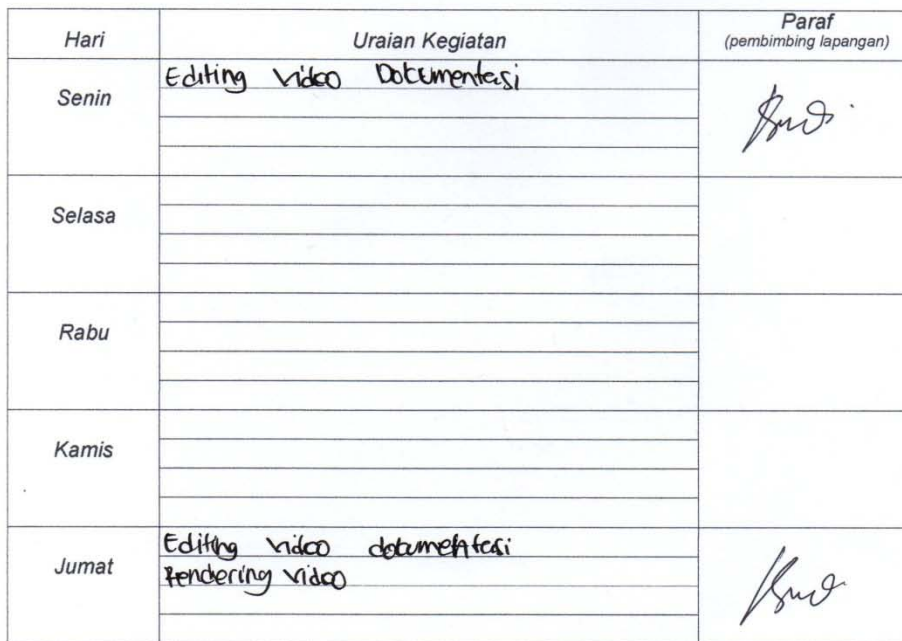 Hari Uraian Kegiatan Paraf
(pembimbing lapangan)
Senin Editing video Dokumentasi
Selasa
Rabu
Kamis
Jumat Editing video dokumentasi
Rendering video